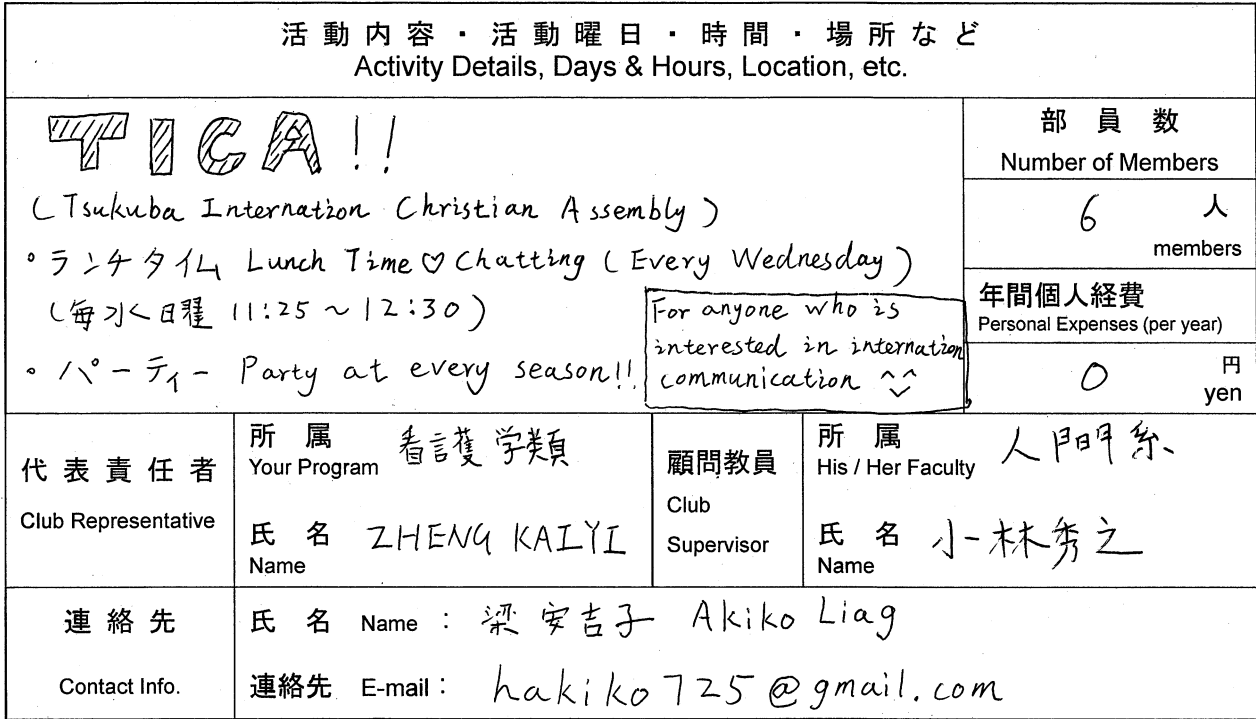 活動内容・活動曜日・時間・場所など
Activity Details, Days & Hours, Location, etc.
TICA!!
(Tsukuba Internation Christian Assembly)
・ランチタイム Lunch Time♡Chatting (Every Wednesday)
(毎水曜日 11:25～12:30)
・パーティー Party at every season!!
For anyone who is
interested in internation
communication ^^
部員数
Number of Members
6 人
members
年間個人経費
Personal Expenses (per year)
0 円
yen
代表責任者
Club Representative
所属 看護学類
Your Program
氏名 ZHENG KAIYI
Name
顧問教員
Club
Supervisor
所属 人間系
His / Her Faculty
氏名 小林秀之
Name
連絡先
Contact Info.
氏名 Name : 梁安吉子 Akiko Liag
連絡先 E-mail : hakiko725@gmail.com